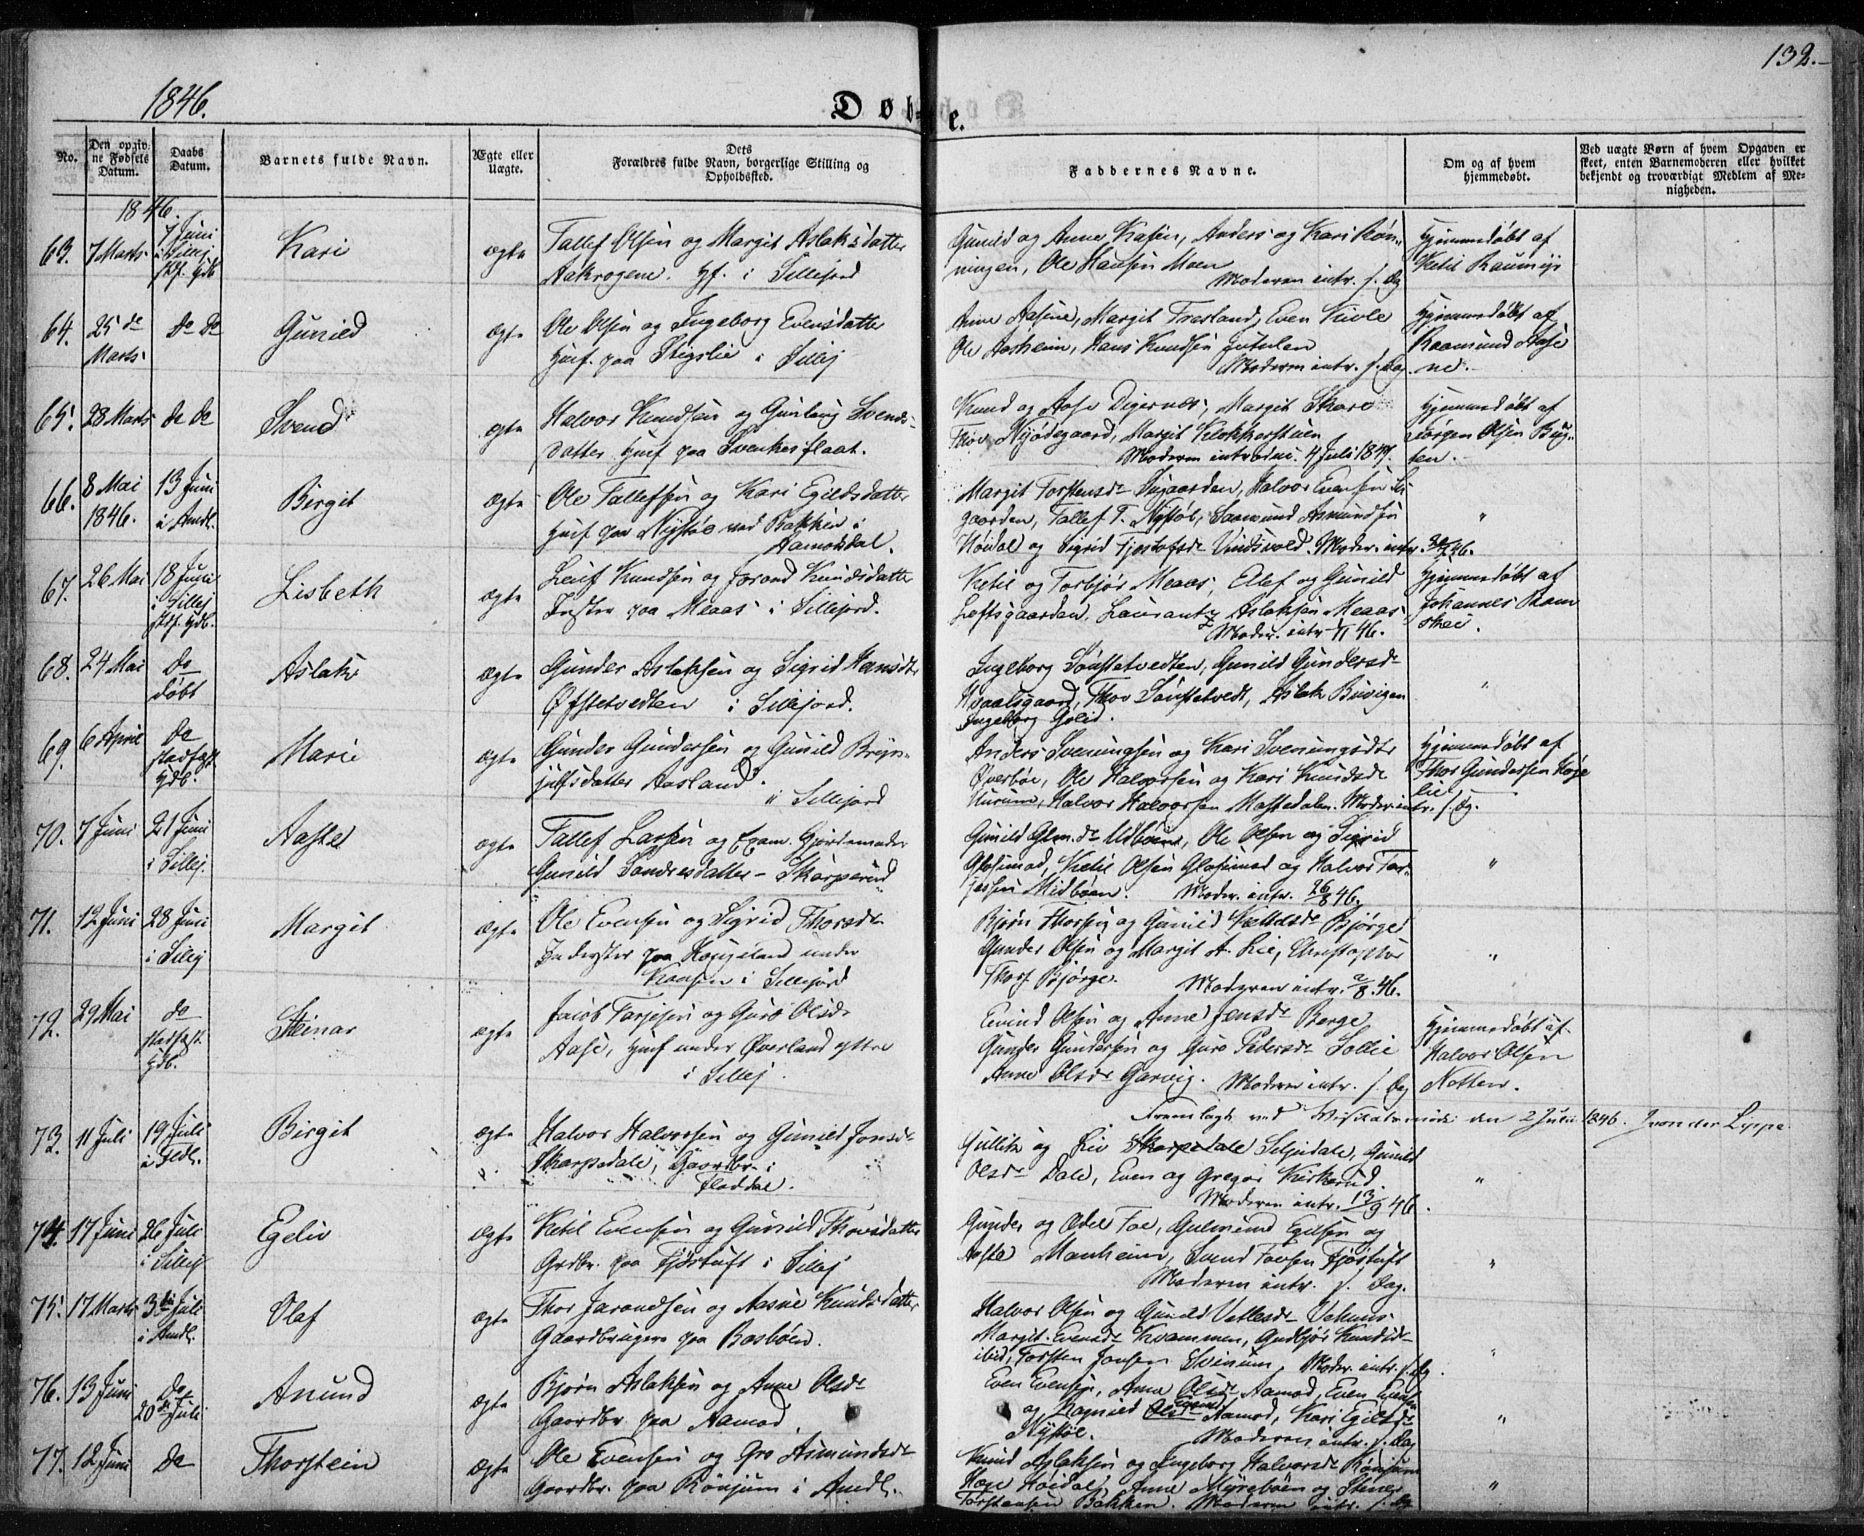 132.
1846.
Døbte.
No.
Den opgivne Fødsels Datum.
Daabs Datum.
Barnets fulde Navn.
Ægte eller Uægte.
Dets Forældres fulde Navn, borgerlige Stilling og Opholdssted.
Faddernes Navne.
Om og af hvem hjemmedøbt.
Ved uægte Børn af hvem Opgaven er skeet, enten Barnemoderen eller hvilket bekjendt og troværdigt Medlem af Menigheden.
1846.
63. 7 Marts 7 Juni i Sillej. Kari ægte
Tallef Olsen og Margit Aslaksdatter
Aakrogene. Hf. i Sillejord
Gunild og Anne Kasin, Anders og Kari Røn-
ningen, Ole Hansen Moen
Moderen intr. s. Dag
Hjemmedøbt af
Ketil
64. 25 de Marts do do Gunild ægte
Ole Olsen og Ingeborg Evensdatter
Huusf. paa Stigslie i Sillej
Anne Aasene, Margit Treeland, Even Kivle
Ole Aasheim, Hans Knudsen Jutulen
Moderen intr. s. Dag.
Hjemmedøbt af
Raamund Aase
ne.
65. 28 Marts do do Svend ægte
Halvor Knudsen og Gunlaug Svends-
datter Huusf. paa Svenkesflaat.
Knud og Aase Digernæs, Margit Skare
Thov Nyødegaard, Margit Klokkerstuen
Moderen introduc. 4 Juli 1847.
Hjemmedøbt af
Jørgen Olsen Byg-
ten.
66. 8 Mai 1846. 13 Juni i Amdl. Birgit ægte
Ole Tallefsen og Kari Egildsdatter
Huusf. paa Nystøe ved Bakken i
Aamotsdal.
Margit Torstensdr Sigaarden, Halvor Evensen Si-
gaarden, Tallef T. Nystøl, Saamund Asmundsen
Høidal og Sigrid Tjostofsdr Vindsvold. Moder. intr. 46.
"
67. 26 Mai 18 Juni i Sillej Lisbeth ægte
Leuf Knudsen og Jorand Knudsdatter
Inster paa Meaas i Sillejord.
Ketil og Torbjør Meaas, Olef og Gunild
Loftsgaarden, Laurantz Aslaksen Meaas
Moder. intr. 46.
Hjemmedøbt af
Johannes Ram
skei.
68. 24 Mai do døbt Aslak ægte
Gunder Aslaksen og Sigrid Hansdtr
Øfstetvedten i Sillejord.
Ingeborg Sønstetvedten, Gunild Gundersdr
Kvaalsgaard, Thov Sønstetvedt, Aslak Buvigen
Ingeborg Gølid.
"
69. 6 April do stadfæst. Hdb. Marie ægte
Gunder Gundersen og Gunild Bryn-
julfsdatter Aasland.
i Sillejord
Anders Sveningsen og Kari Sveningsdtr
Øverbøe, Ole Halvorsen og Kari Knudsdr
Halvor Halvorsen Mostedalen. Moder. intr. s. Dg.
Hjemmedøbt af
Thor Gundersen Høye
lie
70. 7 Juni 21 Juni i Sillej. Aaste ægte
Tallef Larsen og Exam. Gjordemoder
Gunild Sondresdatter - Skarperud
Gunild Midbøen, Ole Olsen og Sigrid
Glosimod, Ketil Olsen Glosimod og Halvor Tor-
jessen Midbøen. Moder. intr. 26/8 46.
"
71. 12 Juni 28 Juni i Sillej Margit ægte
Ole Evensen og Sigrid Thorsdr
Inderster paa under
i Sillejord
Bjørn Thorsen og Gunild Kettilsdr Bjørge
Gunder Olsen og Margit A. Lie, Christopher
Thors Bjørge. Moderen intr. 2/8 46.
"
72. 29 Mai do stadfæst. Hdb. Steinar ægte
Jacob Tarjesen og Guro Olsdr
Aase, Huusf under Øverland østre
i Sillej.
Eivind Olsen og Anne Jensdr Berge
Gunder Gundersen og Guro Pedersdr Sollie
Anne Olsdr Garvig. Moderen intr. s. Dag
Hjemmedøbt af
Halvor Olsen
Notten.
Fremlagt ved Visitatsmøde den 2 Juli 1846. J von der Lippe
73. 11 Juli 19 Juli i Fldl. Birgit ægte
Halvor Halvorsen og Gunild Jonsdr
Skarpedale, Gaardbr. i
Fladdal.
Gullik og Liv Skarpedale Seljedale, Gunild
Olsdr Dale, Even og Gregor Kirkerud.
Moderen intr. 13/9 46.
"
74. 17 Juni 26 Juli i Sillej Egeliv ægte
Ketil Evensen og Gunild Thovsdatter
Grdbr. paa Fjøstuft i Sillej
Gunder og Odel Toe, Gulmund Egilsen og
Aaste Manheim, Svend Tovsen Fjøstuft
Moderen intr. s. Dag.
"
75. 17 Marts i Amdl. Olaf ægte
Thor Jarandsen og Aasne Knudsdatter
Gaardbrugere paa Bosbøen.
Halvor Olsen og Gunild Vetlesdr
Margit Evensdr Kvammen, Gudbjør Knudsdr
ibid, Torsten Jonsen Svinum, Moder. intr. s. Dag
"
76. 13 Juni do 20 Juli Anund ægte
Bjørn Aslaksen og Anne Olsdr
Gaardbr. paa Aamod.
Even Evensen, Anne Olsdr Aamod, Even
og Ragnild Aamod, Kari Egilsdr
Nystøl. Moderen intr. s. Dag
"
77. 12 Juni do Thorstein ægte
Ole Evensen og Gro Asmundsdr
Gaardbr. paa Rønjum i Amdl.
Knud Aslaksen og Ingeborg Halvorsdr Rønjum
Høidal, Anne Myrebøen og Stener
Torstensen Bakken. Moderen intr. s. Dg
"